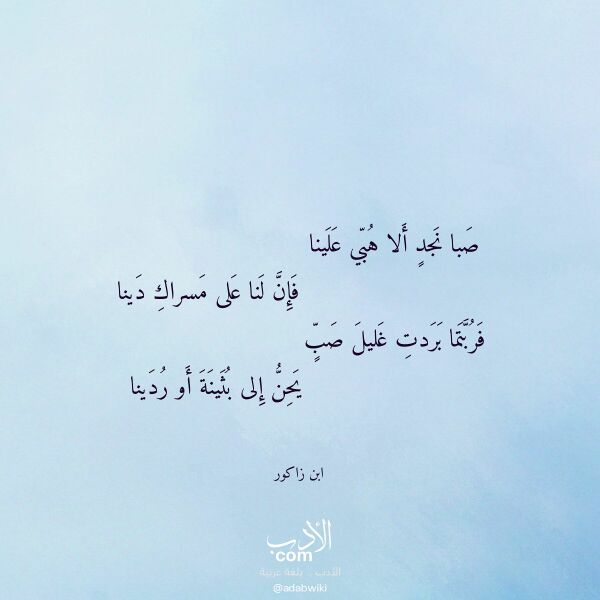 صَبا نَجدٍ أَلا هُبّي عَلَينا
فَإِنَّ لَنا عَلى مَسراكِ دَينا
فَرُبَّتَما بَرَدتِ غَليلَ صَبٍّ
يَحِنُّ إِلى بُثَينَةَ أَو رُدَينا
ابن زاكور
الأدب
com
الأدب .. بلغة عربية
@adabwiki